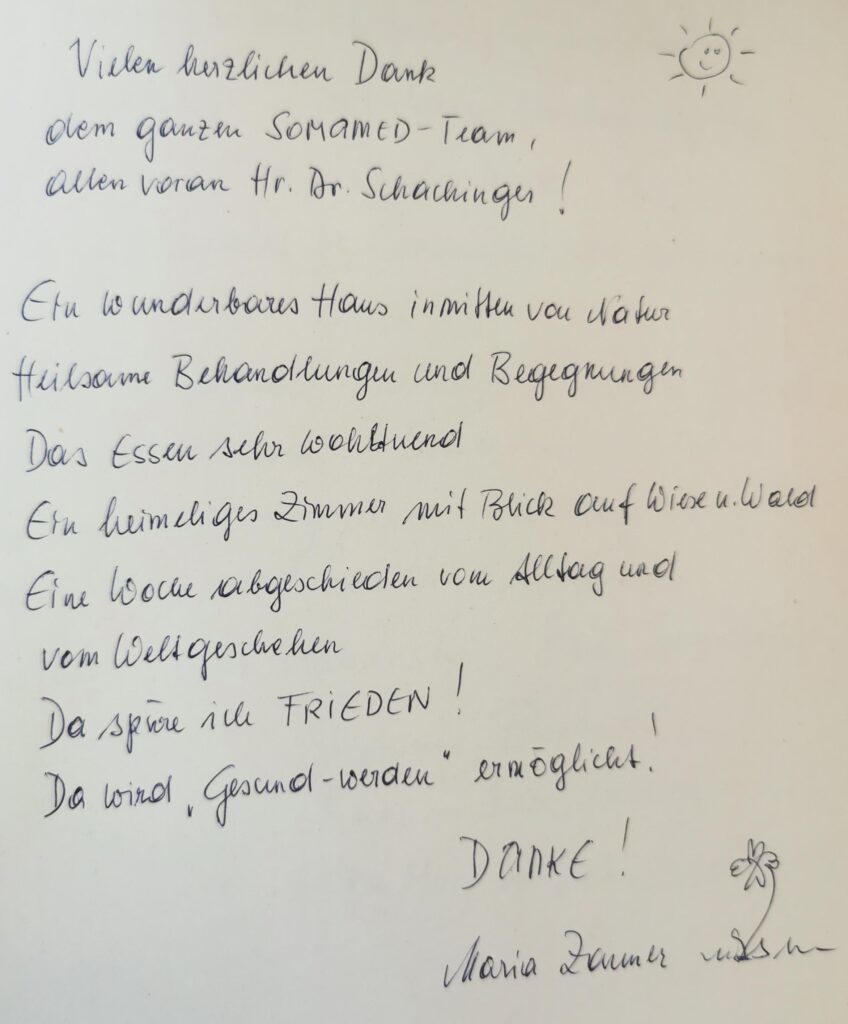 Vielen herzlichen Dank
dem ganzen SOMAMED-Team,
allen voran Hr. Dr. Schachinger!
Ein wunderbares Haus inmitten von Natur
Heilsame Behandlungen und Begegnungen
Das Essen sehr wohltuend
Ein heimeliges Zimmer mit Blick auf Wiese u. Wald
Eine Woche abgeschieden vom Alltag und
vom Weltgeschehen
Da spüre ich FRIEDEN!
Da wird „Gesund-werden“ ermöglicht!
DANKE!
Maria